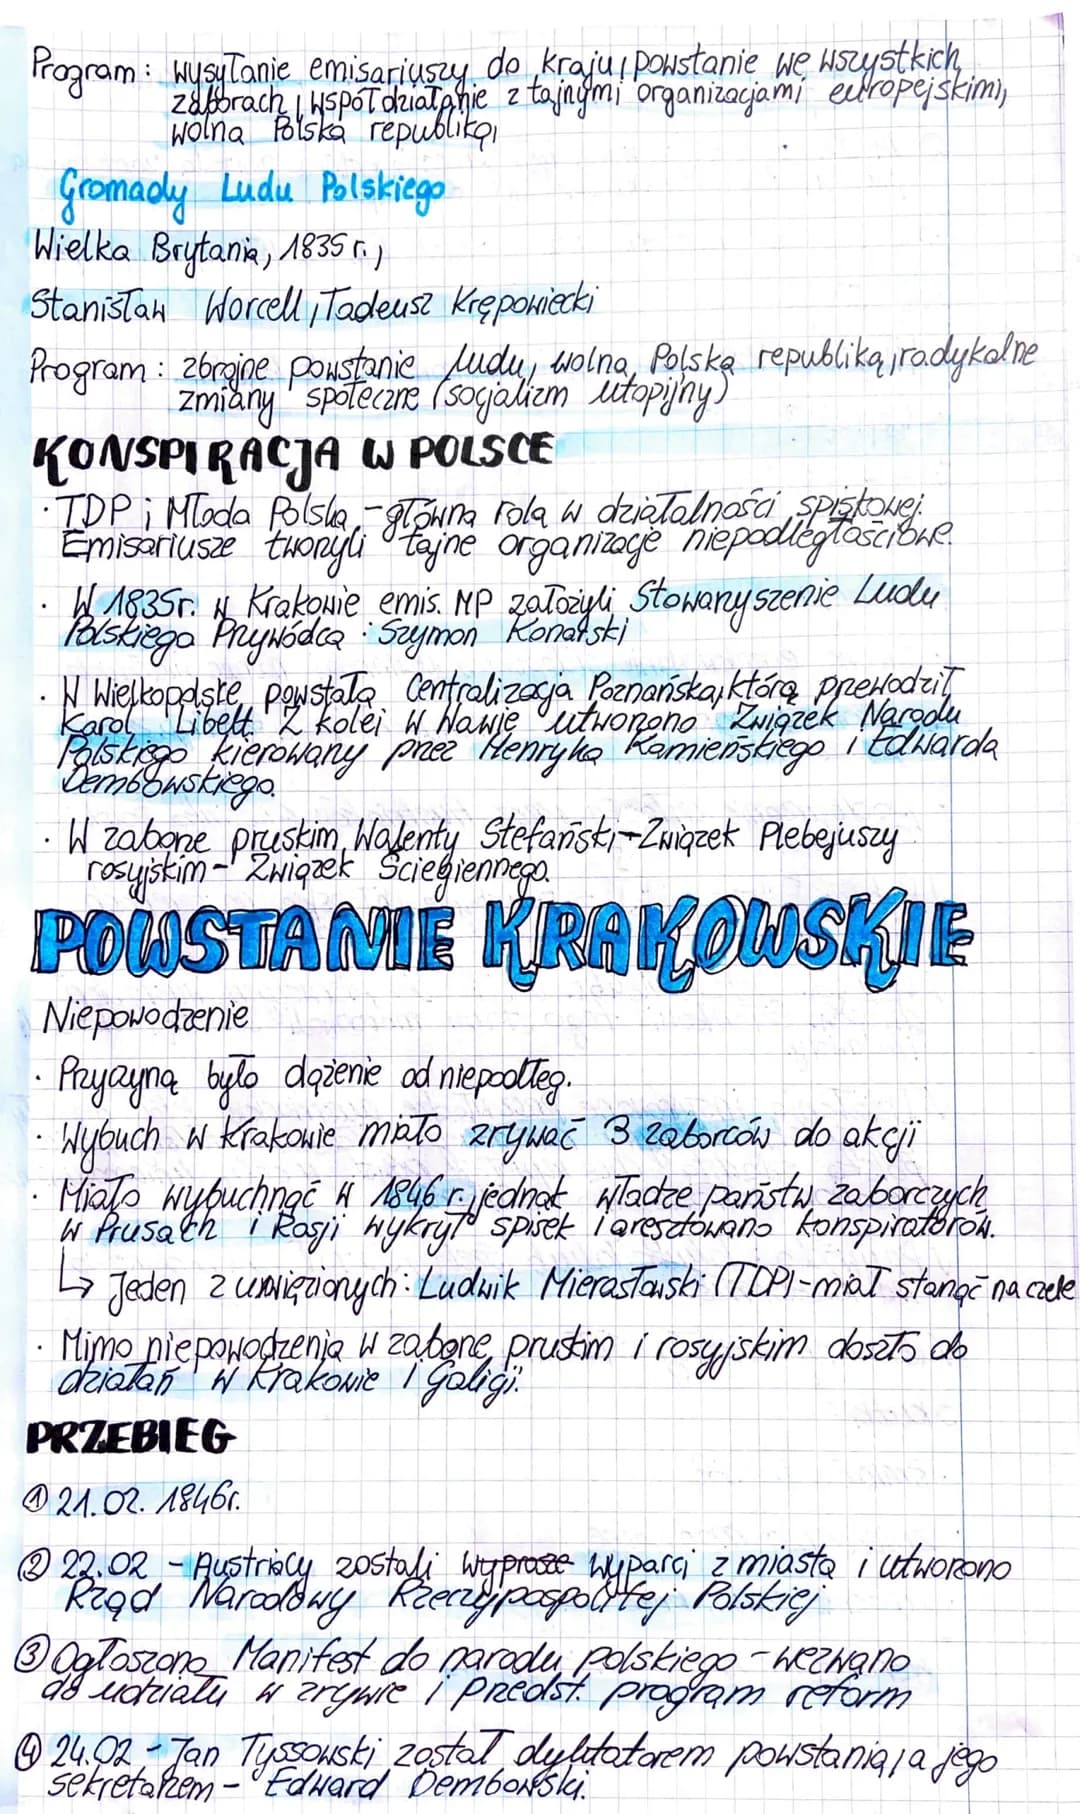 Program: wysyłanie emisariuszy do kraju, powstanie we wszystkich
zaborach, współdziałanie z tajnymi organizacjami europejskimi,
wolna Polska republiką,
Gromady Ludu Polskiego
Wielka Brytania, 1835 r.,
Stanisław Worcell, Tadeusz Krępowiecki
Program: zbrojne powstanie ludu, wolna Polska republiką, radykalne
zmiany społeczne (socjalizm utopijny)
KONSPIRACJA W POLSCE
· TDP i Młoda Polska - główna rola w działalności spiskowej.
Emisariusze tworzyli tajne organizacje niepodległościowe.
· W 1835r. w Krakowie emis. MP założyli Stowarzyszenie Ludu
Polskiego Przywódca: Szymon Konarski
· W Wielkopolsce powstała Centralizacja Poznańska, którą przewodził
Karol Libelt. Z kolei w Wawie utworzono Związek Narodu
Polskiego kierowany przez Henryka Kamieńskiego i Edwarda
Dembowskiego.
· W zaborze pruskim Walenty Stefański - Związek Plebejuszy
rosyjskim - Związek Ściegiennego.
POWSTANIE KRAKOWSKIE
Niepowodzenie
· Przyczyną było dążenie od niepodleg.
· Wybuch w Krakowie miało zrywać 3 zaborców do akcji
· Miało wybuchnąć w 1846 r., jednak władze państw zaborczych
w Prusach i Rosji wykrył spisek i aresztowano konspiratorów.
↳ Jeden z uwięzionych: Ludwik Mierasławski (TDP) - miał stanąć na czele
· Mimo niepowodzenia w zaborze pruskim i rosyjskim doszło do
działań w Krakowie i Galicji.
PRZEBIEG
① 21.02.1846r.
② 22.02 - Austriacy zostali wyprosze wyparci z miasta i utworzono
Rząd Narodowy Rzeczypospolitej Polskiej
③ Ogłoszono Manifest do narodu polskiego - wezwano
do udziału w zrywie i przedst. program reform
④ 24.02 - Jan Tyssowski został dyktatorem powstania, a jego
sekretarzem - Edward Dembowski.